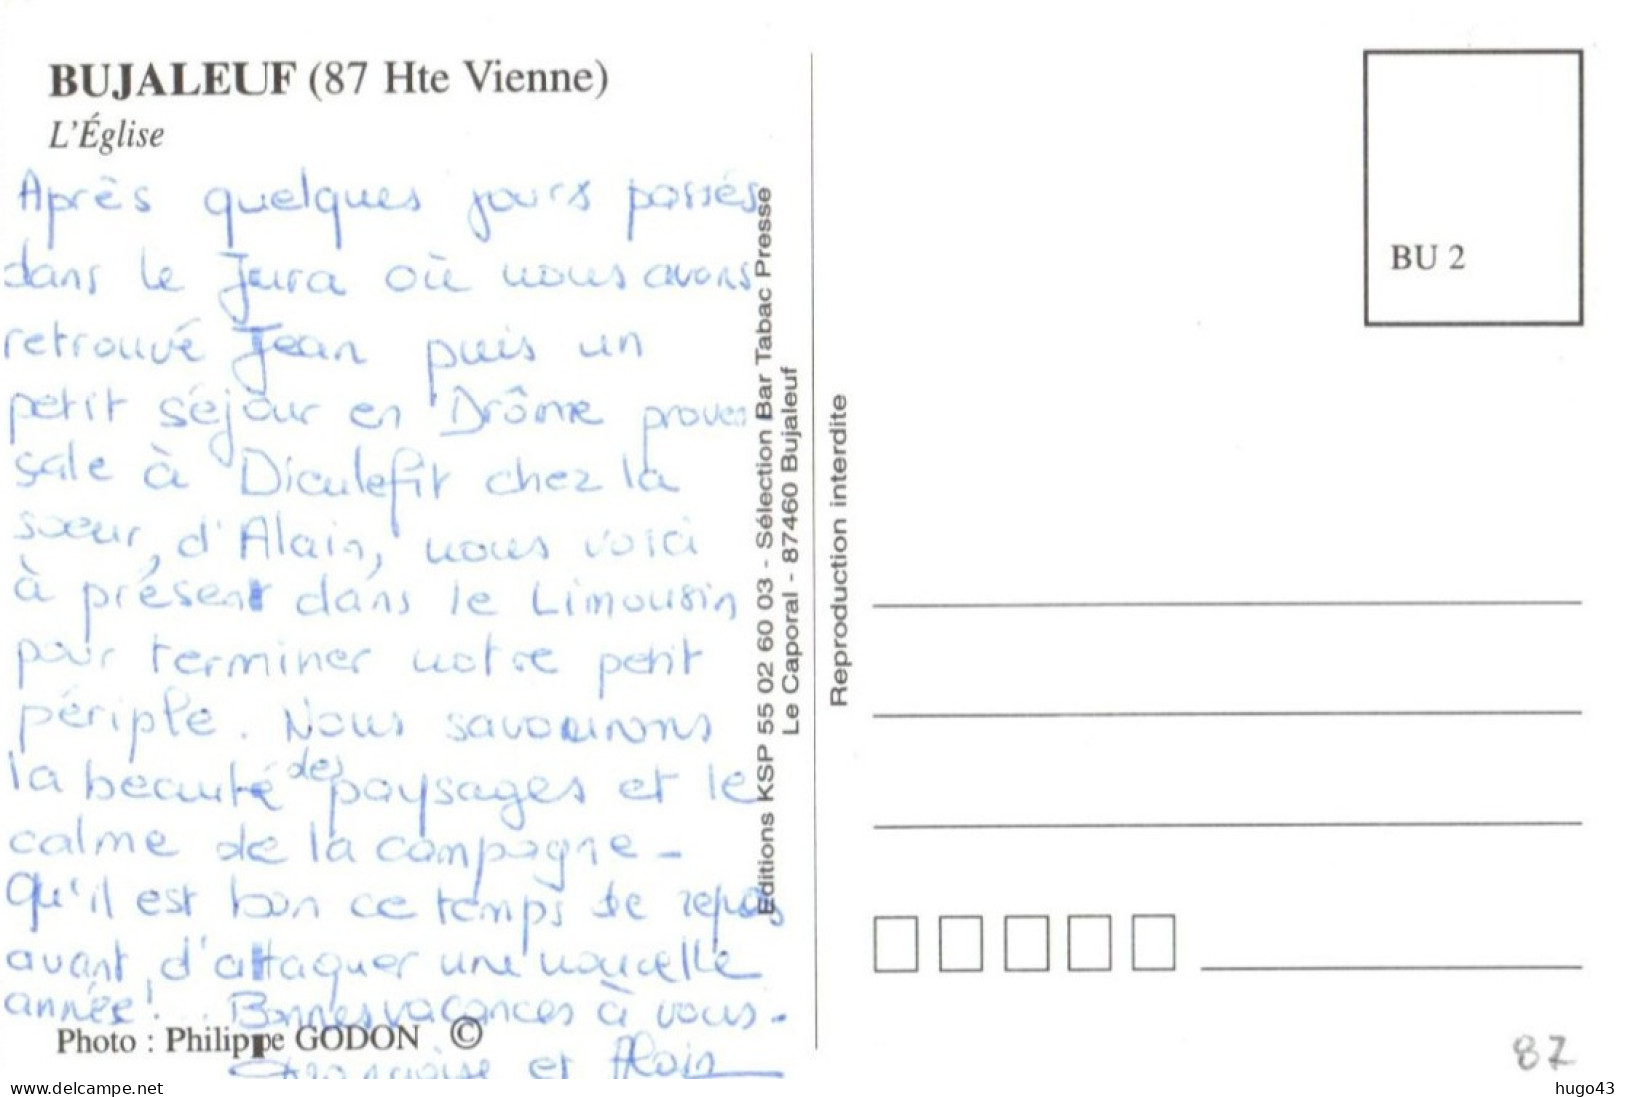 BUJALEUF (87 Hte Vienne)
L'Église
Après quelques jours passés
dans le Jura où nous avons
retrouvé Jean puis un
petit séjour en Drôme proven
sale à Dieulefit chez la
sœur d'Alain, nous voici
à présent dans le Limousin
pour terminer notre petit
périple. Nous savourons
la beauté des paysages et le
calme de la campagne -
Qu'il est bon ce temps de repos
avant d'attaquer une nouvelle
année!... Bonnes vacances à vous.
Françoise et Alain
Photo : Philippe GODON ©
Editions KSP 55 02 60 03 - Sélection Bar Tabac Presse
Le Caporal - 87460 Bujaleuf
Reproduction interdite
BU 2
87
www.delcampe.net
hugo43